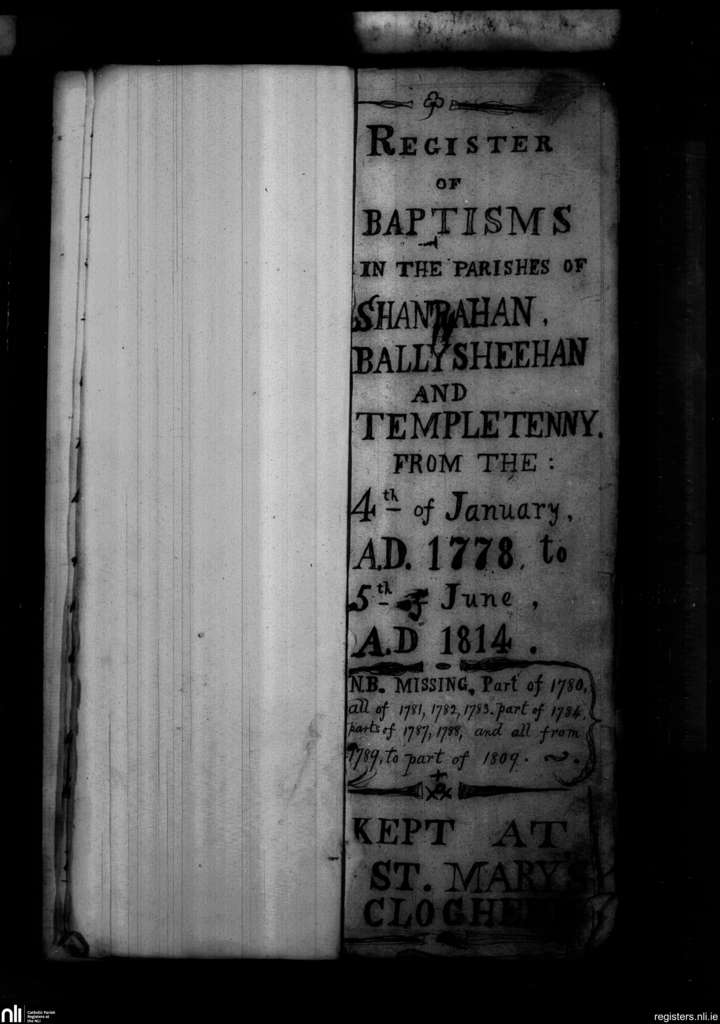 REGISTER
OF
BAPTISMS
IN THE PARISHES OF
SHANRAHAN,
BALLYSHEEHAN
AND
TEMPLETENNY.
FROM THE:
4th of January,
A.D. 1778, to
5th of June,
A.D 1814.
N.B. MISSING, Part of 1780,
all of 1781, 1782, 1783. part of 1784,
parts of 1787, 1788, and all from
1789, to part of 1809.
KEPT AT
ST. MARY'S
CLOGHEEN
nli
Catholic Parish
Registers at
the NLI
registers.nli.ie